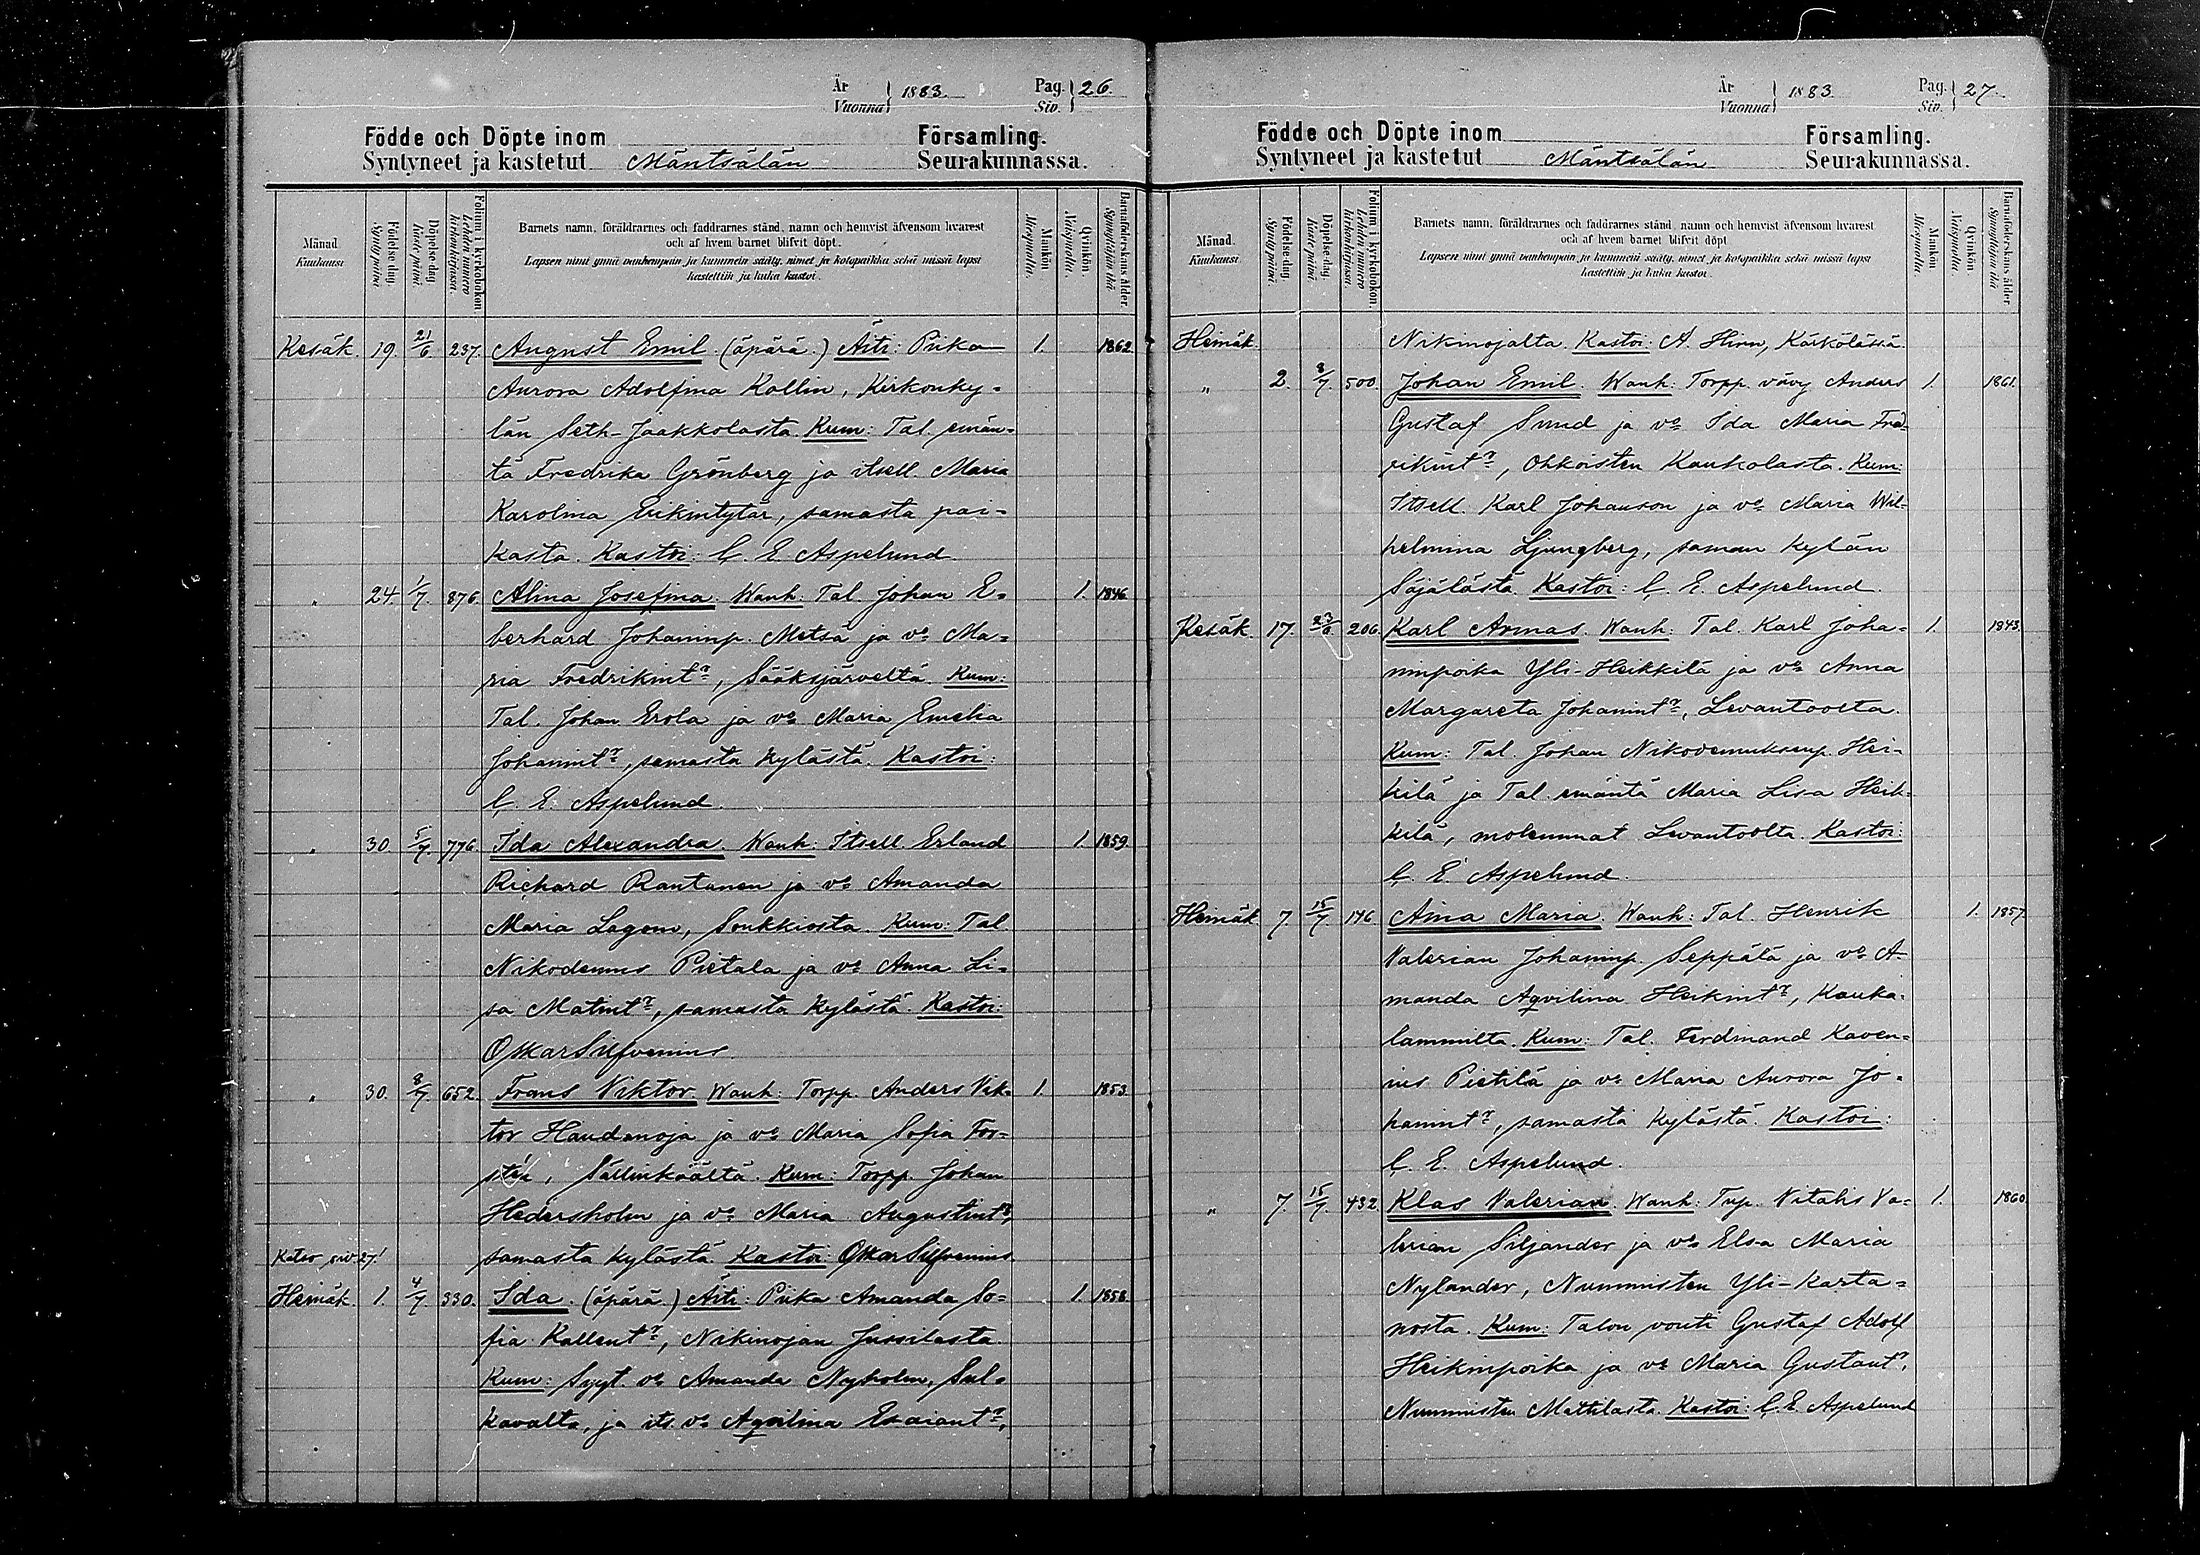 År 1883. Pag. 26.
Vuonna Siv.
Födde och Döpte inom Församling.
Syntyneet ja kastetut Mäntsälän Seurakunnassa.
Månad. Kuukausi
Födelse-dag. Syntypäivä.
Döpelse-dag. Kastepäivä.
Folium i kyrkoboken. Lehden numero kirkonkirjassa.
Barnets namn, föräldrarnes och faddrarnes stånd, namn och hemvist äfvensom hvarest
och af hvem barnet blifvit döpt.
Lapsen nimi ynnä vanhempain ja kummein sääty, nimet ja kotopaikka sekä missä lapsi
kastettiin ja kuka kastoi.
Mankön Miespuolia.
Qvinkön Naispuolia.
Barnaföderskans ålder. Synnyttäjän ikä
Kesäk. 19. 21/6 237. August Emil (äpärä.) Äiti: Piika 1. 1862.
Aurora Adolfina Kollin, Kirkonky-
län Seth-Jaakkolasta. Kum: Tal. emän-
tä Fredrika Grönberg ja itsell. Maria
Karolina Erikintytär, samasta pai-
kasta. Kastoi: C. E. Aspelund
" 24. 1/7. 876. Alina Josefina. Wanh: Tal. Johan E- 1. 1846.
berhard Johaninp. Metsä ja vo Ma-
ria Fredrikintr, Sääksjärveltä. Kum:
Tal. Johan Erola ja vo Maria Emelia
Johanintr, samasta kylästä. Kastoi:
C. E. Aspelund.
" 30. 5/7. 776. Ida Alexandra. Wanh: Itsell. Erland 1. 1859.
Richard Rantanen ja vo Amanda
Maria Lagom, Soukkiosta. Kum: Tal.
Nikodemus Pietala ja vo Anna Li-
sa Matintr, samasta kylästä. Kastoi:
Oskar Silfvenius
" 30. 8/7. 652. Frans Viktor. Wanh: Torpp. Anders Vik- 1. 1853.
tor Haudanoja ja vo Maria Sofia Fors-
stén, Sällinkäältä. Kum: Torpp. Johan
Hedersholm ja vo Maria Augustintr,
samasta kylästä. Kastoi: Oskar Silfvenius
Katso siv. 27!
Heinäk. 1. 4/7 330. Ida. (äpärä.) Äiti: Piika Amanda So- 1. 1858.
fia Kallentr, Nikinojan Jussilasta.
Kum: Sygt. vo Amanda Nyholm, Sul-
kavalta, ja its. vo Aqvilina Esaiantr,
År 1883. Pag. 27.
Vuonna Siv.
Födde och Döpte inom Församling.
Syntyneet ja kastetut Mäntsälän Seurakunnassa.
Månad. Kuukausi.
Födelse-dag. Syntypäivä.
Döpelse-dag. Kastepäivä.
Folium i kyrkoboken. Lehden numero kirkonkirjassa.
Barnets namn, föräldrarnes och faddrarnes stånd, namn och hemvist äfvensom hvarest
och af hvem barnet blifvit döpt
Lapsen nimi ynnä vanhempain ja kummein sääty, nimet ja kotopaikka sekä missä lapsi
kastettiin ja kuka kastoi.
Mankön Miespuolia.
Qvinkön Naispuolia.
Barnaföderskans ålder. Synnyttäjän ikä
Heinäk. Nikinojalta. Kastoi: A. Hirn, Kärkölässä.
" 2. 8/7. 500. Johan Emil. Wanh: Torpp. vävy Anders 1. 1861.
Gustaf Sund ja vo Ida Maria Fred-
rikintr, Ohkoisten Kaukolasta. Kum:
Itsell. Karl Johanson ja vo Maria Wil-
helmina Ljungberg, saman kylän
Säjälästä. Kastoi: C. E. Aspelund.
Kesäk. 17. 23/6. 206. Karl Armas. Wanh: Tal. Karl Joha- 1. 1843.
ninpoika Yli-Heikkilä ja vo Anna
Margareta Johanintr, Levantoolta.
Kum: Tal. Johan Nikodemuksenp. Hei-
kilä ja Tal. emäntä Maria Lisa Heik-
kilä, molemmat Levantoolta. Kastoi:
C. E. Aspelund.
Heinäk. 7. 15/7. 176. Aina Maria. Wanh: Tal. Henrik 1. 1857.
Valerian Johaninp. Seppälä ja vo A-
manda Aqvilina Heikintr, Kauka-
lammilta. Kum: Tal. Ferdinand Kaven-
ius Pietilä ja vo Maria Aurora Jo-
hanintr, samasta kylästä. Kastoi:
C. E. Aspelund.
" 7. 15/7. 432. Klas Valerian. Wanh: Trp. Vitalis Va- 1. 1860.
lerian Siljander ja vo Elsa Maria
Nylander, Nummisten Yli-Karta-
nosta. Kum: Talon vouti Gustaf Adolf
Heikinpoika ja vo Maria Gustantr,
Nummisten Mattilasta. Kastoi: C. E. Aspelund